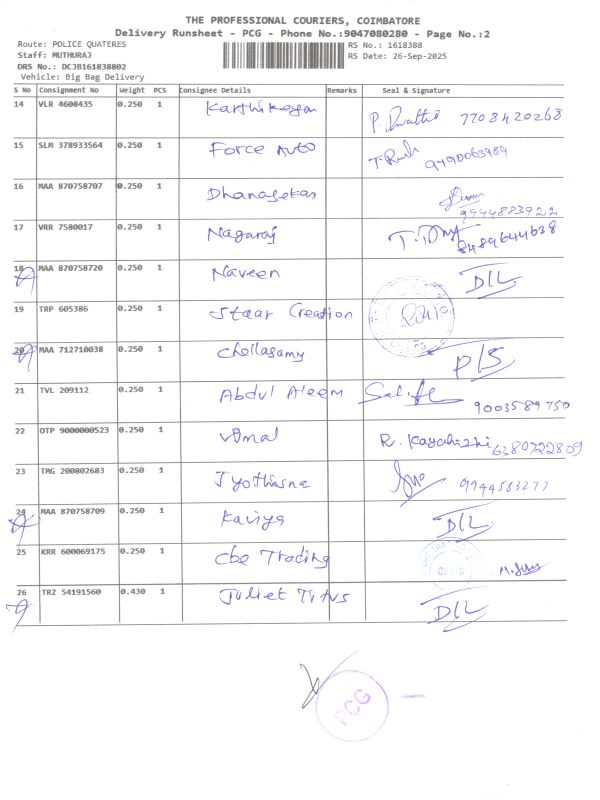 THE PROFESSIONAL COURIERS, COIMBATORE
Delivery Runsheet - PCG - Phone No.:9047080280 - Page No.:2
Route: POLICE QUATERES RS No.: 1618388
Staff: MUTHURAJ RS Date: 26-Sep-2025
DRS No.: DCJB161838802
Vehicle: Big Bag Delivery
S No Consignment No Weight PCS Consignee Details Remarks Seal & Signature
14 VLR 4608435 0.250 1 Karthikeyan 7708420268
15 SLM 378933564 0.250 1 Force Auto 9790063989
16 MAA 870758707 0.250 1 Dhanasekar 9944883922
17 VRR 7580017 0.250 1 Nagaraj 8489644638
18 MAA 870758720 0.250 1 Naveen D/L
19 TRP 605386 0.250 1 Staar Creation
20 MAA 712710038 0.250 1 Chellasamy P/S
21 TVL 209112 0.250 1 Abdul Aleem 9003589750
22 OTP 9000000523 0.250 1 Vimal R. 6380722809
23 TMG 200802683 0.250 1 Jyothisna
24 MAA 870758709 0.250 1 Kaviya D/L
25 KRR 600069175 0.250 1 Cbe Trading
26 TRZ 54191560 0.430 1 Juliet Titus D/L
PCG